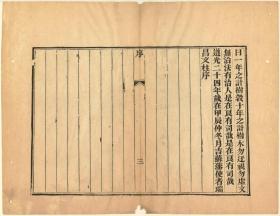 曰一年之計樹穀十年之計樹木勿迂視勿虛文
無治法有治人是在良有司哉是在良有司哉
道光二十四年歲在甲辰仲冬月吉蘇藩使者瑞
昌文柱序
序
三